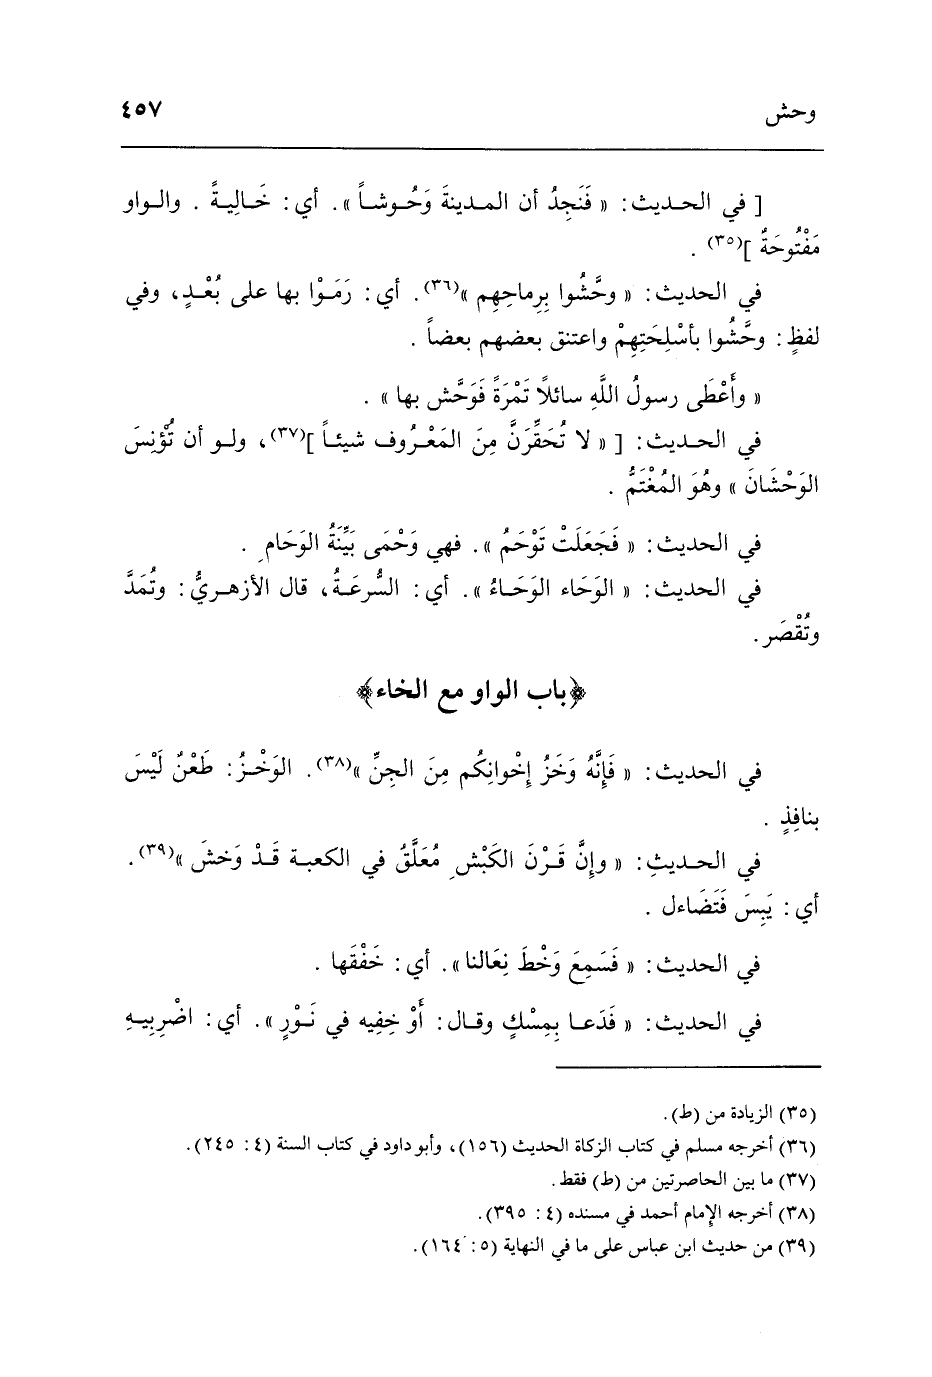 وحش ٤٥٧
[ في الحـديث: « فَنَجِدُ أن المـدينةَ وَحُـوشـاً ». أي: خَـالِيـةً . والـواو
مَفْتُوحَةٌ ](٣٥) .
في الحديث: « وحَّشُوا بِرِماحِهِم »(٣٦). أي: رَمَـوْا بها على بُعْـدٍ، وفي
لفظٍ: وحَّشُوا بأسْلِحَتِهِمْ واعتنق بعضهم بعضاً .
« وأَعْطَى رسولُ اللَّهِ سائلاً تَمْرَةً فَوَحَّش بها » .
في الحـديث: [ « لا تُحَقِّرَنَّ مِنَ المَعْـرُوف شيئـاً ](٣٧)، ولـو أن تُؤْنِسَ
الوَحْشَانَ » وهُوَ المُغْتَمُّ .
في الحديث: « فَجَعَلَتْ تَوْحَمُ ». فهي وَحْمَى بَيِّنَةُ الوَحَامِ .
في الحديث: « الوَحَاء الوَحَـاءُ ». أي: السُّرعَـةُ، قال الأزهـريُّ: وتُمَدَّ
وتُقْصَر.
﴿باب الواو مع الخاء﴾
في الحديث: « فَإِنَّهُ وَخَزُ إخْوانِكُم مِنَ الجِنِّ »(٣٨). الوَخْـزُ: طَعْنٌ لَيْسَ
بنافِذٍ .
في الحـديثِ: « وإنَّ قَـرْنَ الكَبْشِ مُعَلَّقُ في الكعبـة قَـدْ وَخشَ »(٣٩).
أي: يَبِسَ فَتَضَاءل .
في الحديث: « فَسَمِعَ وَخْطَ نِعَالنا ». أي: خَفْقَها .
في الحديث: « فَدَعـا بِمِسْكٍ وقـال: أَوْ خِفِيه في تَـوْرٍ ». أي: اضْرِبِيـهِ
(٣٥) الزيادة من (ط).
(٣٦) أخرجه مسلم في كتاب الزكاة الحديث (١٥٦)، وأبو داود في كتاب السنة (٤: ٢٤٥).
(٣٧) ما بين الحاصرتين من (ط) فقط.
(٣٨) أخرجه الإمام أحمد في مسنده (٤: ٣٩٥).
(٣٩) من حديث ابن عباس على ما في النهاية (٥: ١٦٤).